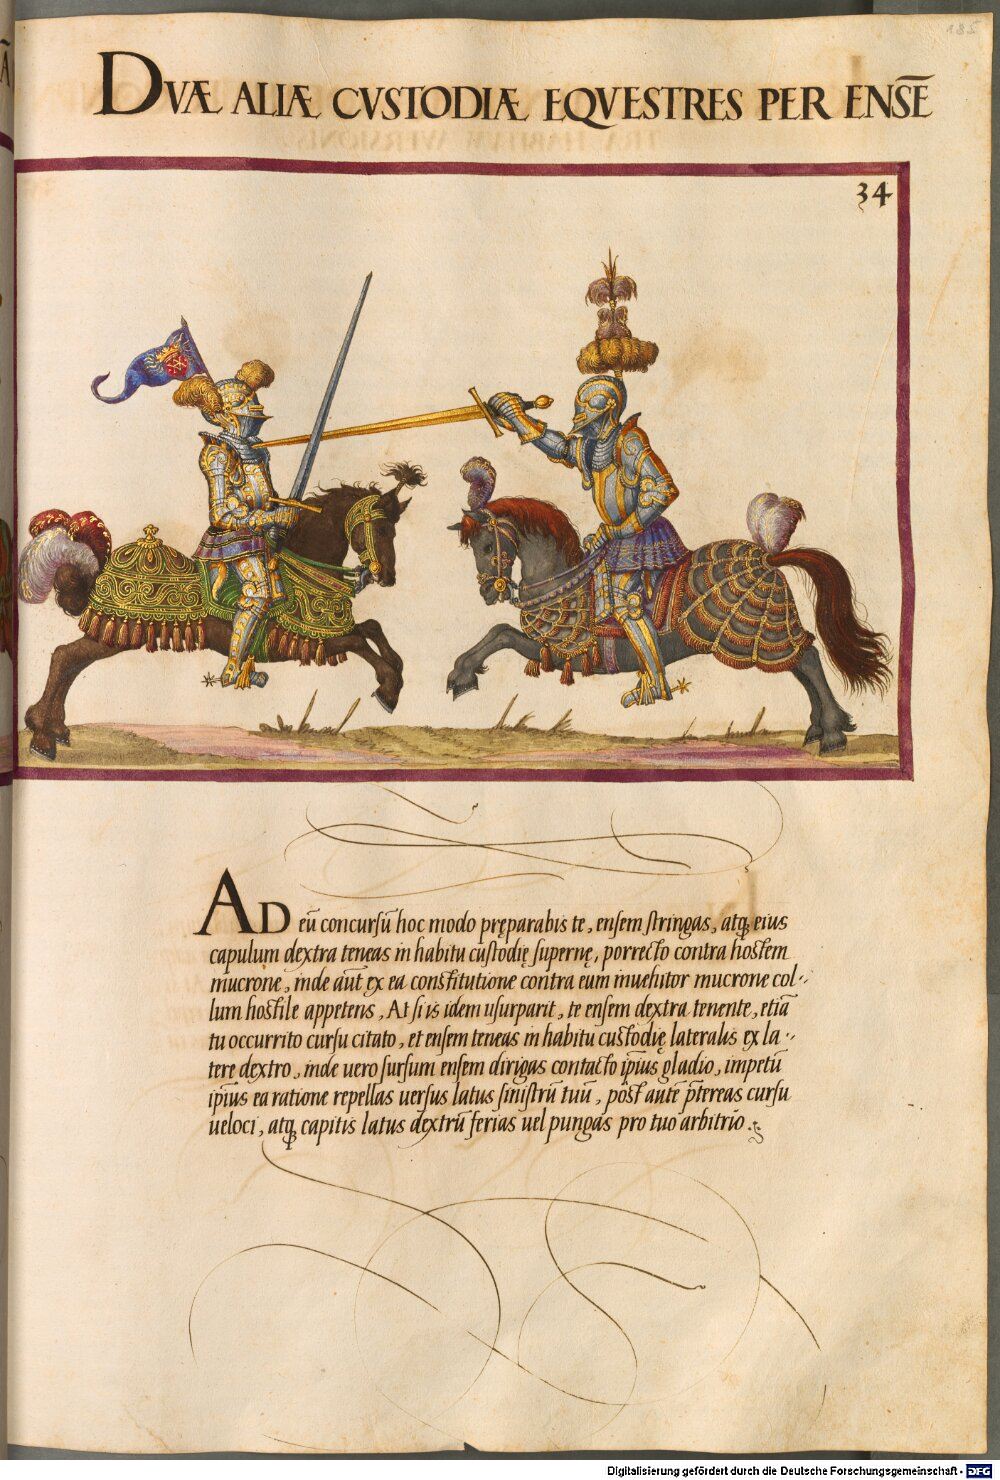 185
DVÆ ALIÆ CVSTODIÆ EQVESTRES PER ENSE̅
34
AD eu̅ concursu̅ hoc modo pręparabis te, ensem stringas, atq; eius
capulum dextra teneas in habitu custodię supernę, porrecto contra hostem
mucrone, inde aut̅ ex ea constitutione contra eum inuehitor mucrone col-
lum hostile appetens, At si is idem usurparit, te ensem dextra tenente, etia̅
tu occurrito cursu citato, et ensem teneas in habitu custodię lateralis ex la-
tere dextro, inde uero sursum ensem dirigas contacto ip̅ius gladio, impetu̅
ip̅ius ea ratione repellas uersus latus sinistru̅ tuu̅, post aute̅ p̅tereas cursu
ueloci, atq; capitis latus dextru̅ ferias uel pungas pro tuo arbitrio.
Digitalisierung gefördert durch die Deutsche Forschungsgemeinschaft - DFG